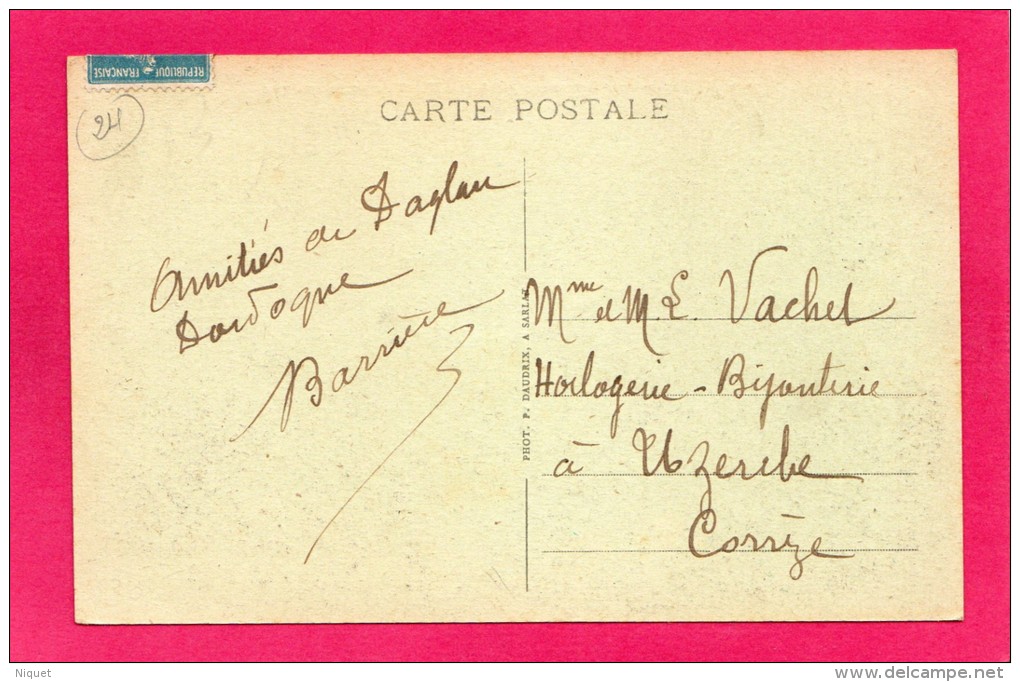 REPUBLIQUE FRANCAISE
24
CARTE POSTALE
Amitiés de Daglan
Dordogne
Barrière
PHOT. P. DAUDRIX, A SARLAT
Mme et M E. Vachet
Horlogerie - Bijouterie
à Uzerche
Corrèze
Niquet
www.delcampe.net